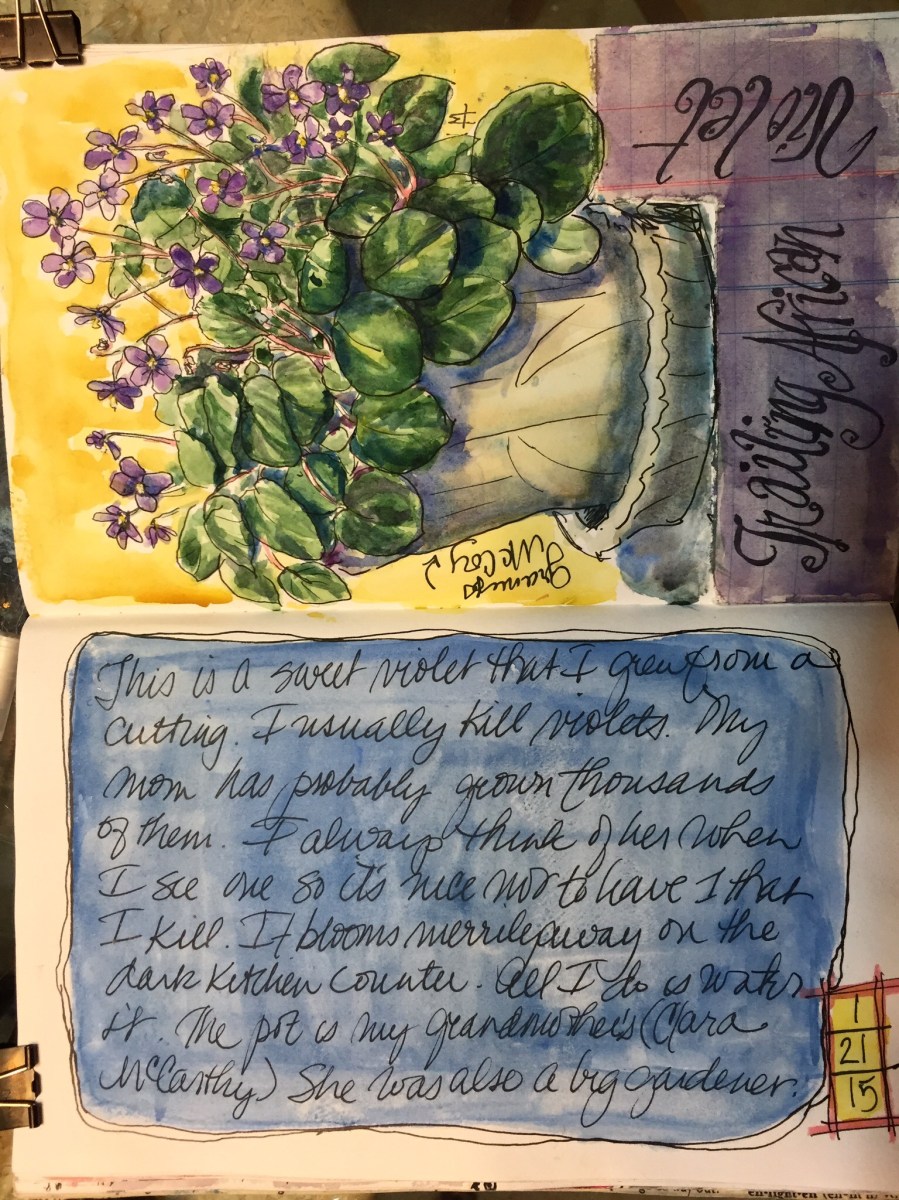 Trailing African
Violet
Gramma
McCoy's
This is a sweet violet that I grew from a
cutting. I usually kill violets. My
mom has probably grown thousands
of them. I always think of her when
I see one so it's nice not to have 1 that
I kill. It blooms merrily away on the
dark kitchen counter. All I do is water
it. The pot is my grandmother's (Clara
McCarthy) She was also a big gardener.
1
21
15